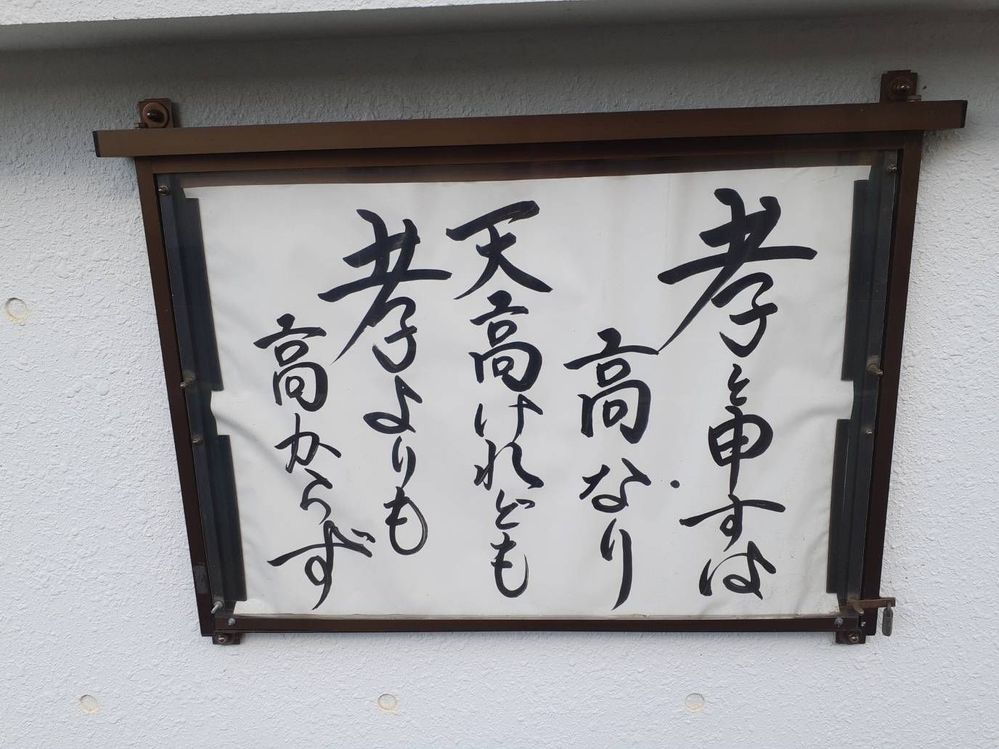 孝と申すは
高なり
天高けれども
孝よりも
高からず